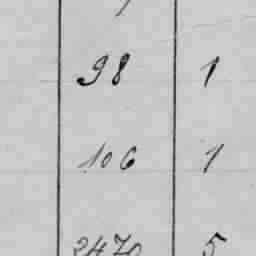 98 1
106 1
2470 5